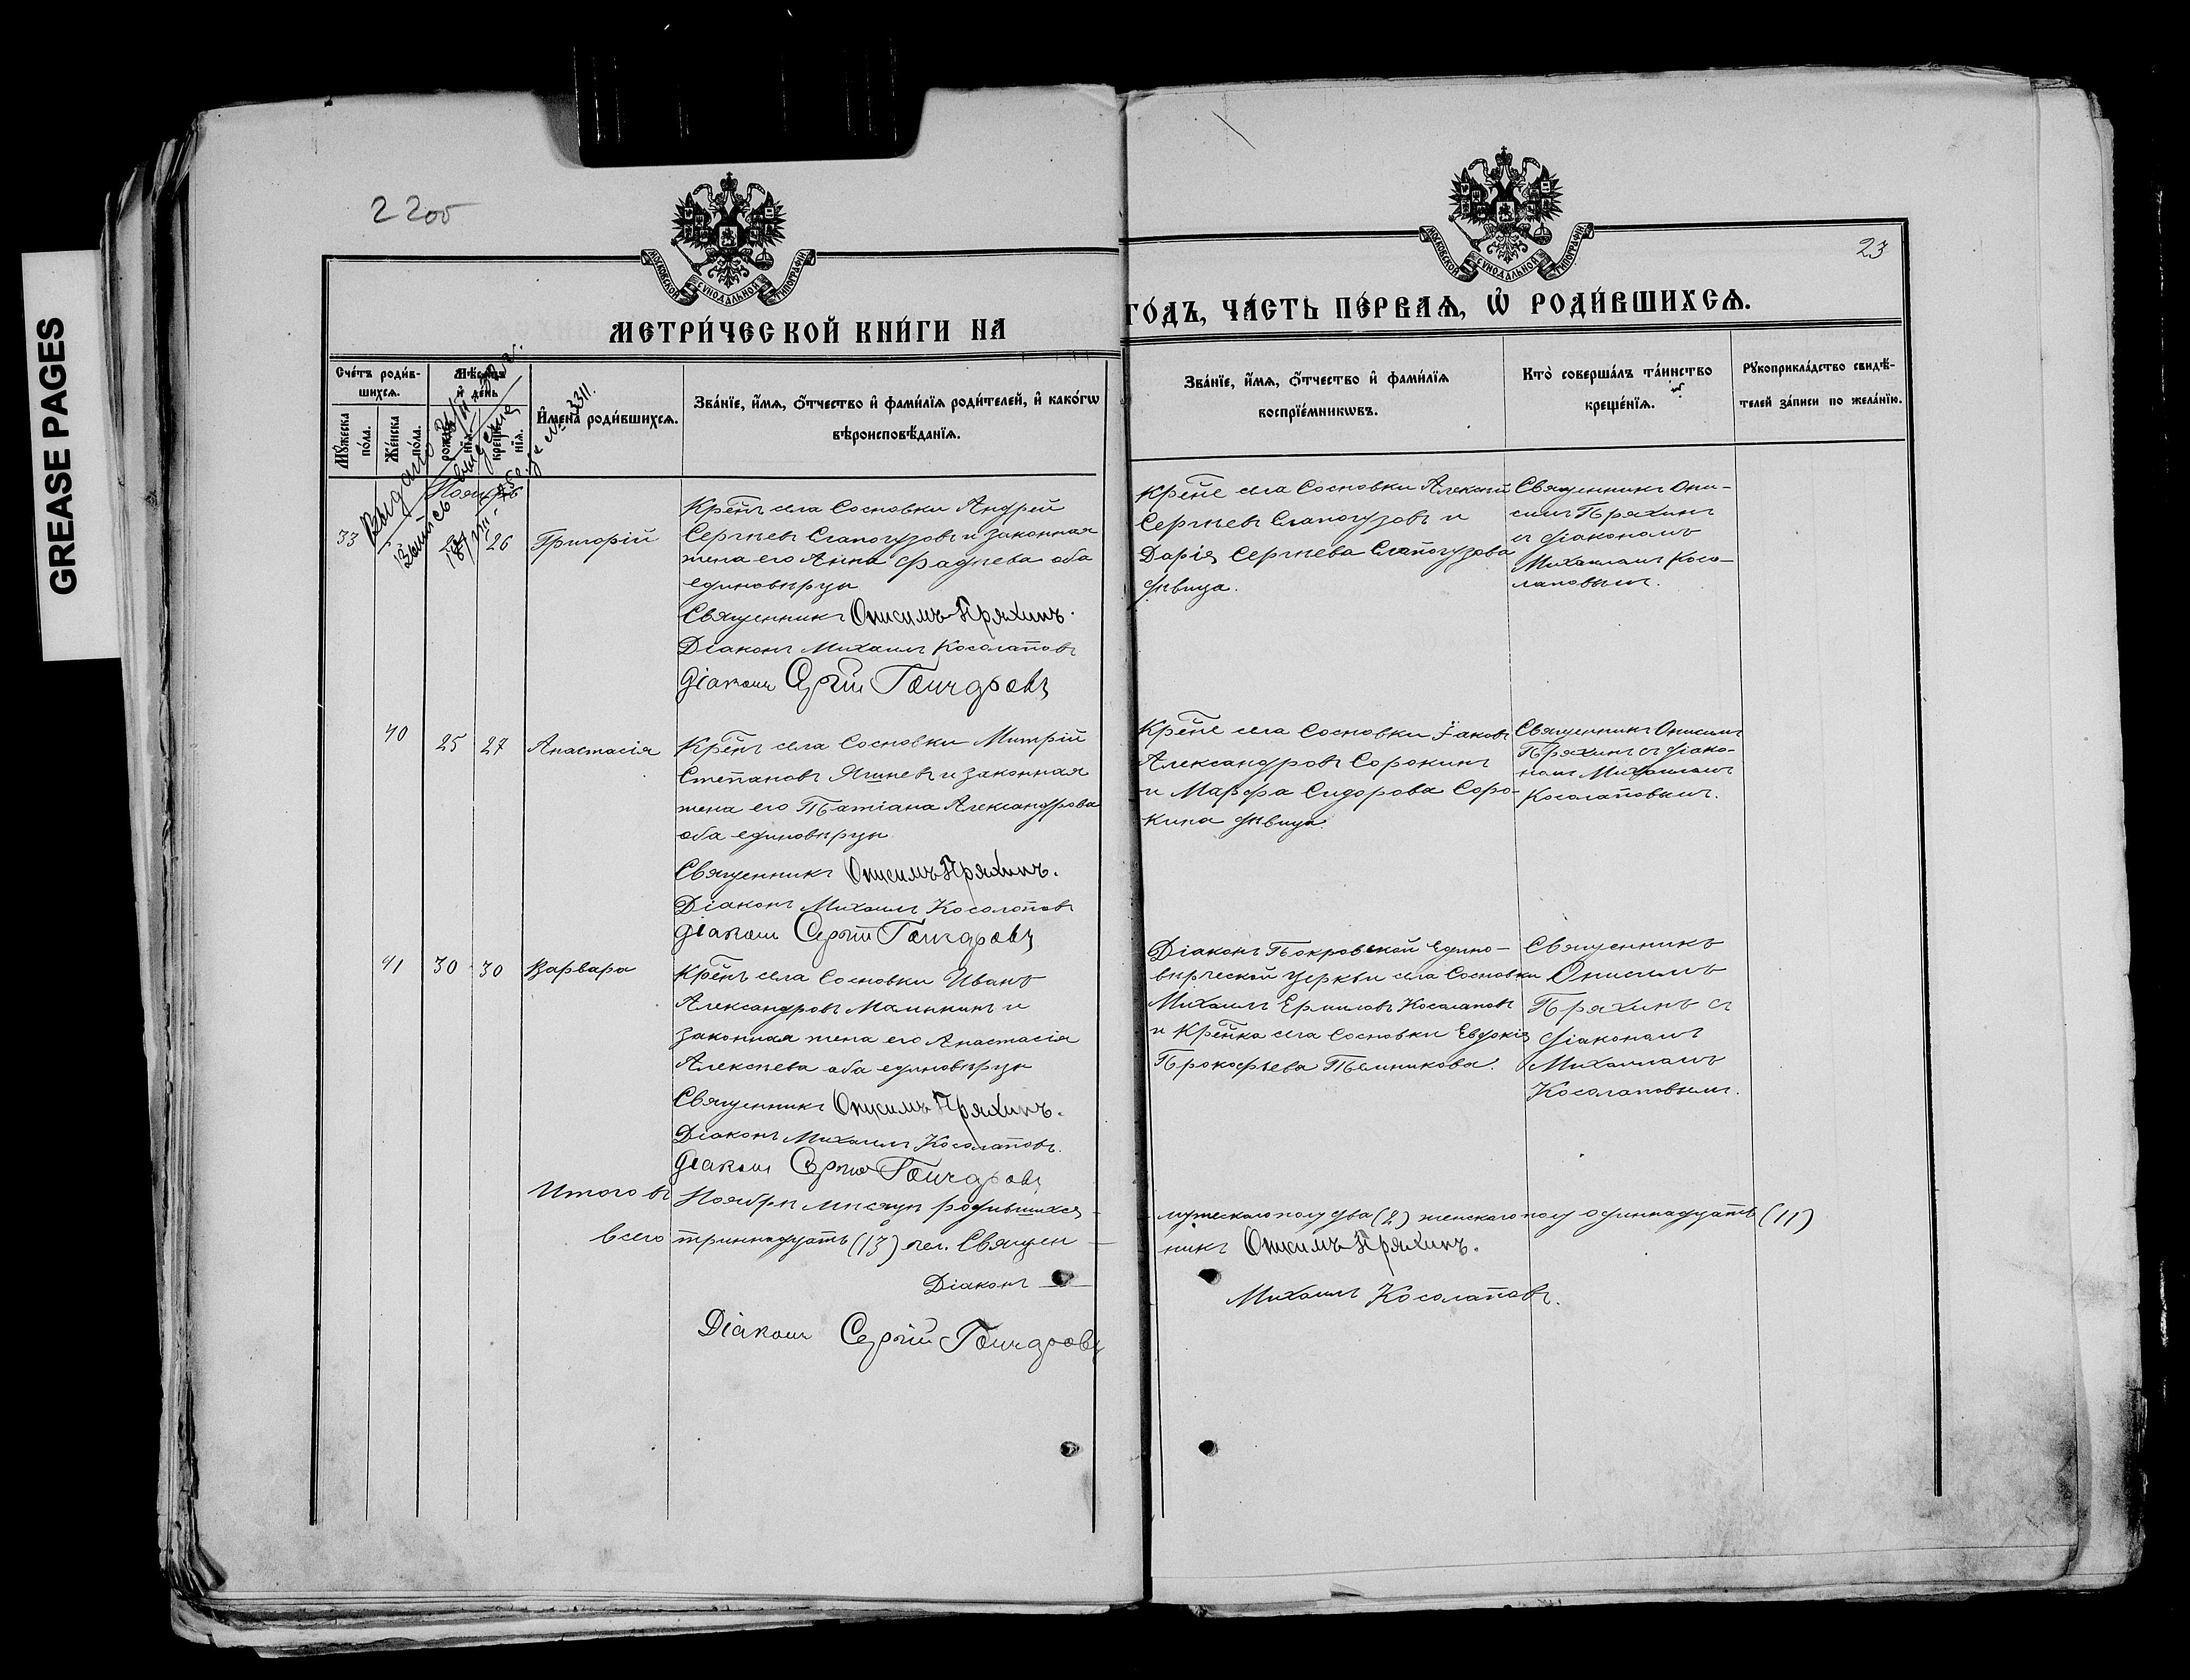 GREASE PAGES
2200
23
МОСКОВСКОЙ СѴНОДАЛЬНОЙ ТИПОГРАФІИ
МОСКОВСКОЙ СѴНОДАЛЬНОЙ ТИПОГРАФІИ
МЕТРИ́ЧЕСКОЙ КНИ́ГИ НА
ГО́ДЪ, ЧА́СТЬ ПЕ́РВАѦ, Ѡ҆ РОДИ́ВШИХСѦ.
Сче́тъ роди́вшихсѧ.
Мꙋ́жеска по́ла.
Же́нска по́ла.
Мѣ́сѧцъ и҆ де́нь
рожде́нїѧ.
креще́нїѧ.
И҆мена̀ роди́вшихсѧ.
Зва́нїе, и҆́мѧ, ѻ҆́тчество и҆ фами́лїѧ роди́телей, и҆ како́гѡ
вѣроисповѣ́данїѧ.
Зва́нїе, и҆́мѧ, ѻ҆́тчество и҆ фами́лїѧ
воспрїе́мникѡвъ.
Кто̀ соверша́лъ та́инство
креще́нїѧ.
Рꙋкоприкла́дство свидѣ́-
телей за́писи по жела́нїю.
Выдано
за № 3311.
Ноябрь
33
26
Григорій
Крен͠ъ села Сосновки Андрей
Сергѣевъ Слапогузовъ и законная
жена его Анна Фадѣева оба
единовѣрцы
Священникъ Онисимъ Пряхинъ.
Діаконъ Михаилъ Косолаповъ
Діаконъ Сергій Гончаровъ
Крене села Сосновки Алексей
Сергѣевъ Слапогузовъ и
Дарія Сергѣева Слапогузова
дѣвица.
Священникъ Они-
симъ Пряхинъ
съ діакономъ
Михаиломъ Косо-
лаповымъ.
40
25
27
Анастасія
Крен͠ъ села Сосновки Митрій
Степановъ Яшневъ и законная
жена его Татіана Александрова
оба единовѣрцы
Священникъ Онисимъ Пряхинъ.
Діаконъ Михаилъ Косолаповъ
Діаконъ Сергій Гончаровъ
Крене села Сосновки Іаковъ
Александровъ Сорокинъ
и Марфа Сидорова Соро-
кина дѣвица.
Священникъ Онисимъ
Пряхинъ съ діако-
номъ Михаиломъ
Косолаповымъ.
41
30
30
Варвара
Крен͠ъ села Сосновки Иванъ
Александровъ Малыкинъ и
законная жена его Анастасія
Алексѣева оба единовѣрцы
Священникъ Онисимъ Пряхинъ.
Діаконъ Михаилъ Косолаповъ.
Діаконъ Сергій Гончаровъ
Діаконъ Покровской Едино-
вѣрческой церкви села Сосновки
Михаилъ Ермиловъ Косолаповъ
и Кренка села Сосновки Евдокія
Прокофьева Темникова.
Священникъ
Онисимъ
Пряхинъ съ
діакономъ
Михаиломъ
Косолаповымъ.
Итого въ Ноябрѣ мѣсяцѣ родившихся
мужескаго полу два (2) женскаго полу одиннадцать (11)
всего триннадцать (13) чел. Священ-
никъ Онисимъ Пряхинъ.
Діаконъ
Михаилъ Косолаповъ.
Діаконъ Сергій Гончаровъ